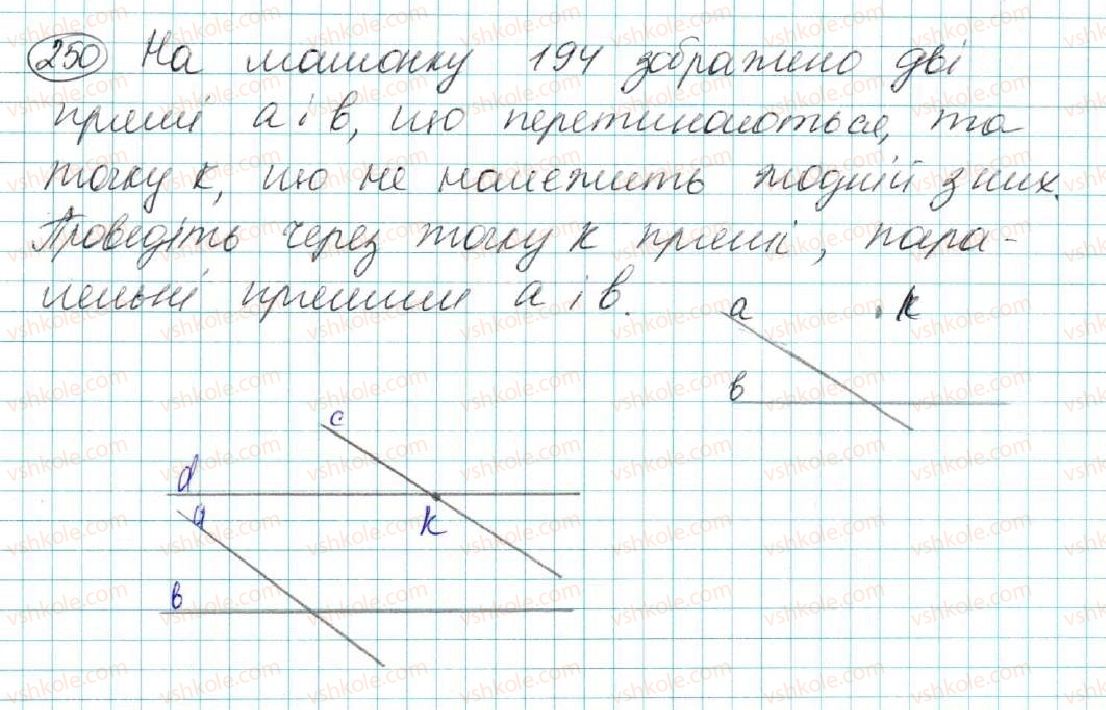 250 На малюнку 194 зображено дві
прямі а і в, що перетинаються, та
точку К, що не належить жодній з них.
Проведіть через точку К прямі, пара-
лельні прямим а і в.
а К
в
с
d
К
а
в
vshkole.com